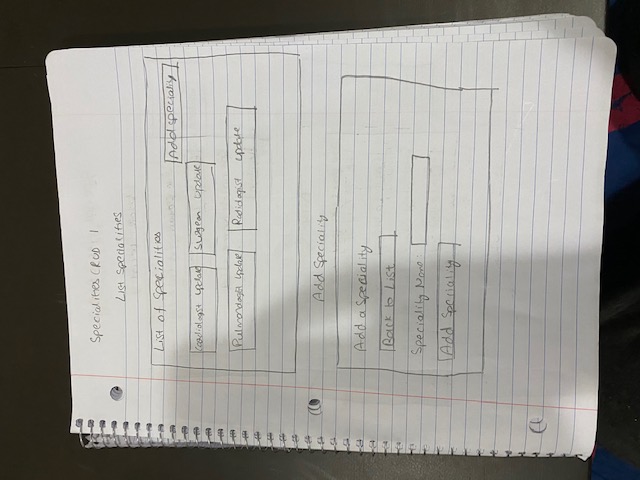 Specialities CRUD 1
List Specialities
List of Specialities
Add Speciality
Cardiologist update
Surgeon update
Pulmonologist update
Radiologist update
Add Speciality
Add a Speciality
Back to List
Speciality Name:
Add Speciality